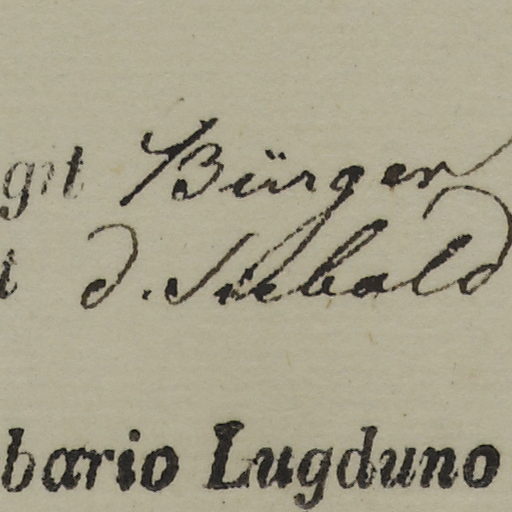 git Bürger
t d. Siebald
bario Lugduno